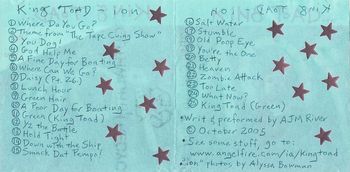 King Toad Lion
① Where Do Ya Go?
② Theme from "The Tape Guing Show"
③ You Dog!
④ God Help Me
⑤ A Fine Day for Boating
⑥ Where Can We Go?
⑦ Daisy (Pt. 26)
⑧ Lunch Hour
⑨ Green Hair
⑩ A Fine Day for Boating
⑪ Green (King Toad)
⑫ In the Bottle
⑬ Hold Tight
⑭ Down with the Ship
⑮ Smack Dat Pempo!
King Toad Lion
⑯ Salt Water
⑰ Stumble
⑱ Old Poop Eye
⑲ You're the One
⑳ Betty
㉑ Heaven
㉒ Zombie Attack
㉓ Too Late
㉔ What Now?
㉕ King Toad (Green)
• Writ & preformed by AJM River
© October 2005
• See some stuff, go to:
www.angelfire.com/ia/kingtoad
• "Lion" photos by Alyssa Bowman